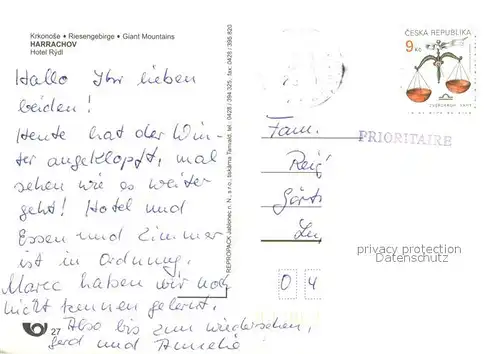 Krkonoše • Riesengebirge • Giant Mountains
HARRACHOV
Hotel Rýdl
Hallo Ihr lieben
beiden!
Heute hat der Win-
ter angeklopft, mal
sehen wie es weiter
geht! Hotel und
Essen und Zimmer
ist in Ordnung.
Marec haben wir noch
nicht kennen gelernt.
Also bis zum wiedersehen,
Gerd und Annelie
27
REPROPACK Jablonec n. N., s r.o., tiskárna Tanvald, tel. 0428 / 394 325, fax. 0428 / 395 820
ČESKÁ REPUBLIKA
9 Kč
PRIORITAIRE
Fam.
privacy protection
Datenschutz
0 4